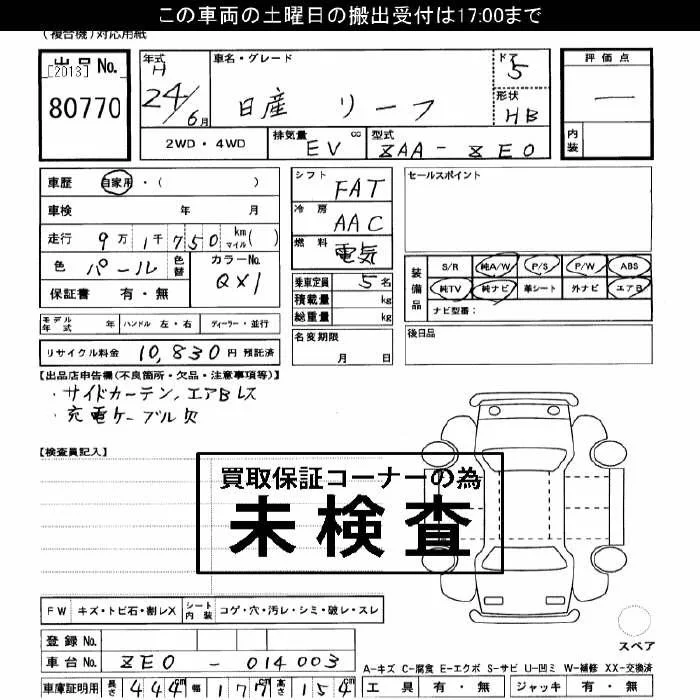 この車両の土曜日の搬出受付は17:00まで
(複合機)対応用紙
出品No.
[2013]
80770
年式 H 24/6月
車名・グレード
日産 リーフ
ドア 5
形状 HB
評価点
—
内装
2WD・4WD
排気量 EV cc
型式 ZAA-ZE0
車歴 自家用・( )
車検 年 月
走行 9万1千750 km マイル( )
色 パール 色替
カラーNo. QX1
保証書 有・無
シフト FAT
冷房 AAC
燃料 電気
乗車定員 5名
積載量 kg
総重量 kg
セールスポイント
装備品
S/R 純A/W P/S P/W ABS
純TV 純ナビ 革シート 外ナビ エアB
ナビ型番:
モデル年式 年 ハンドル 左・右 ディーラー・並行
名変期限 月 日
後日品
リサイクル料金 10,830円 預託済
【出品店申告欄(不良箇所・欠品・注意事項等)】
・サイドカーテン,エアBレス
・充電ケーブル欠
【検査員記入】
買取保証コーナーの為
未検査
FW キズ・トビ石・割レX シート内装 コゲ・穴・汚レ・シミ・破レ・スレ
登録No.
車台No. ZE0-014003
スペア
A-キズ C-腐食 E-エクボ S-サビ U-凹ミ W-補修 XX-交換済
車庫証明用 長さ 444cm 幅 177cm 高さ 154cm
工具 有・無 ジャッキ 有・無